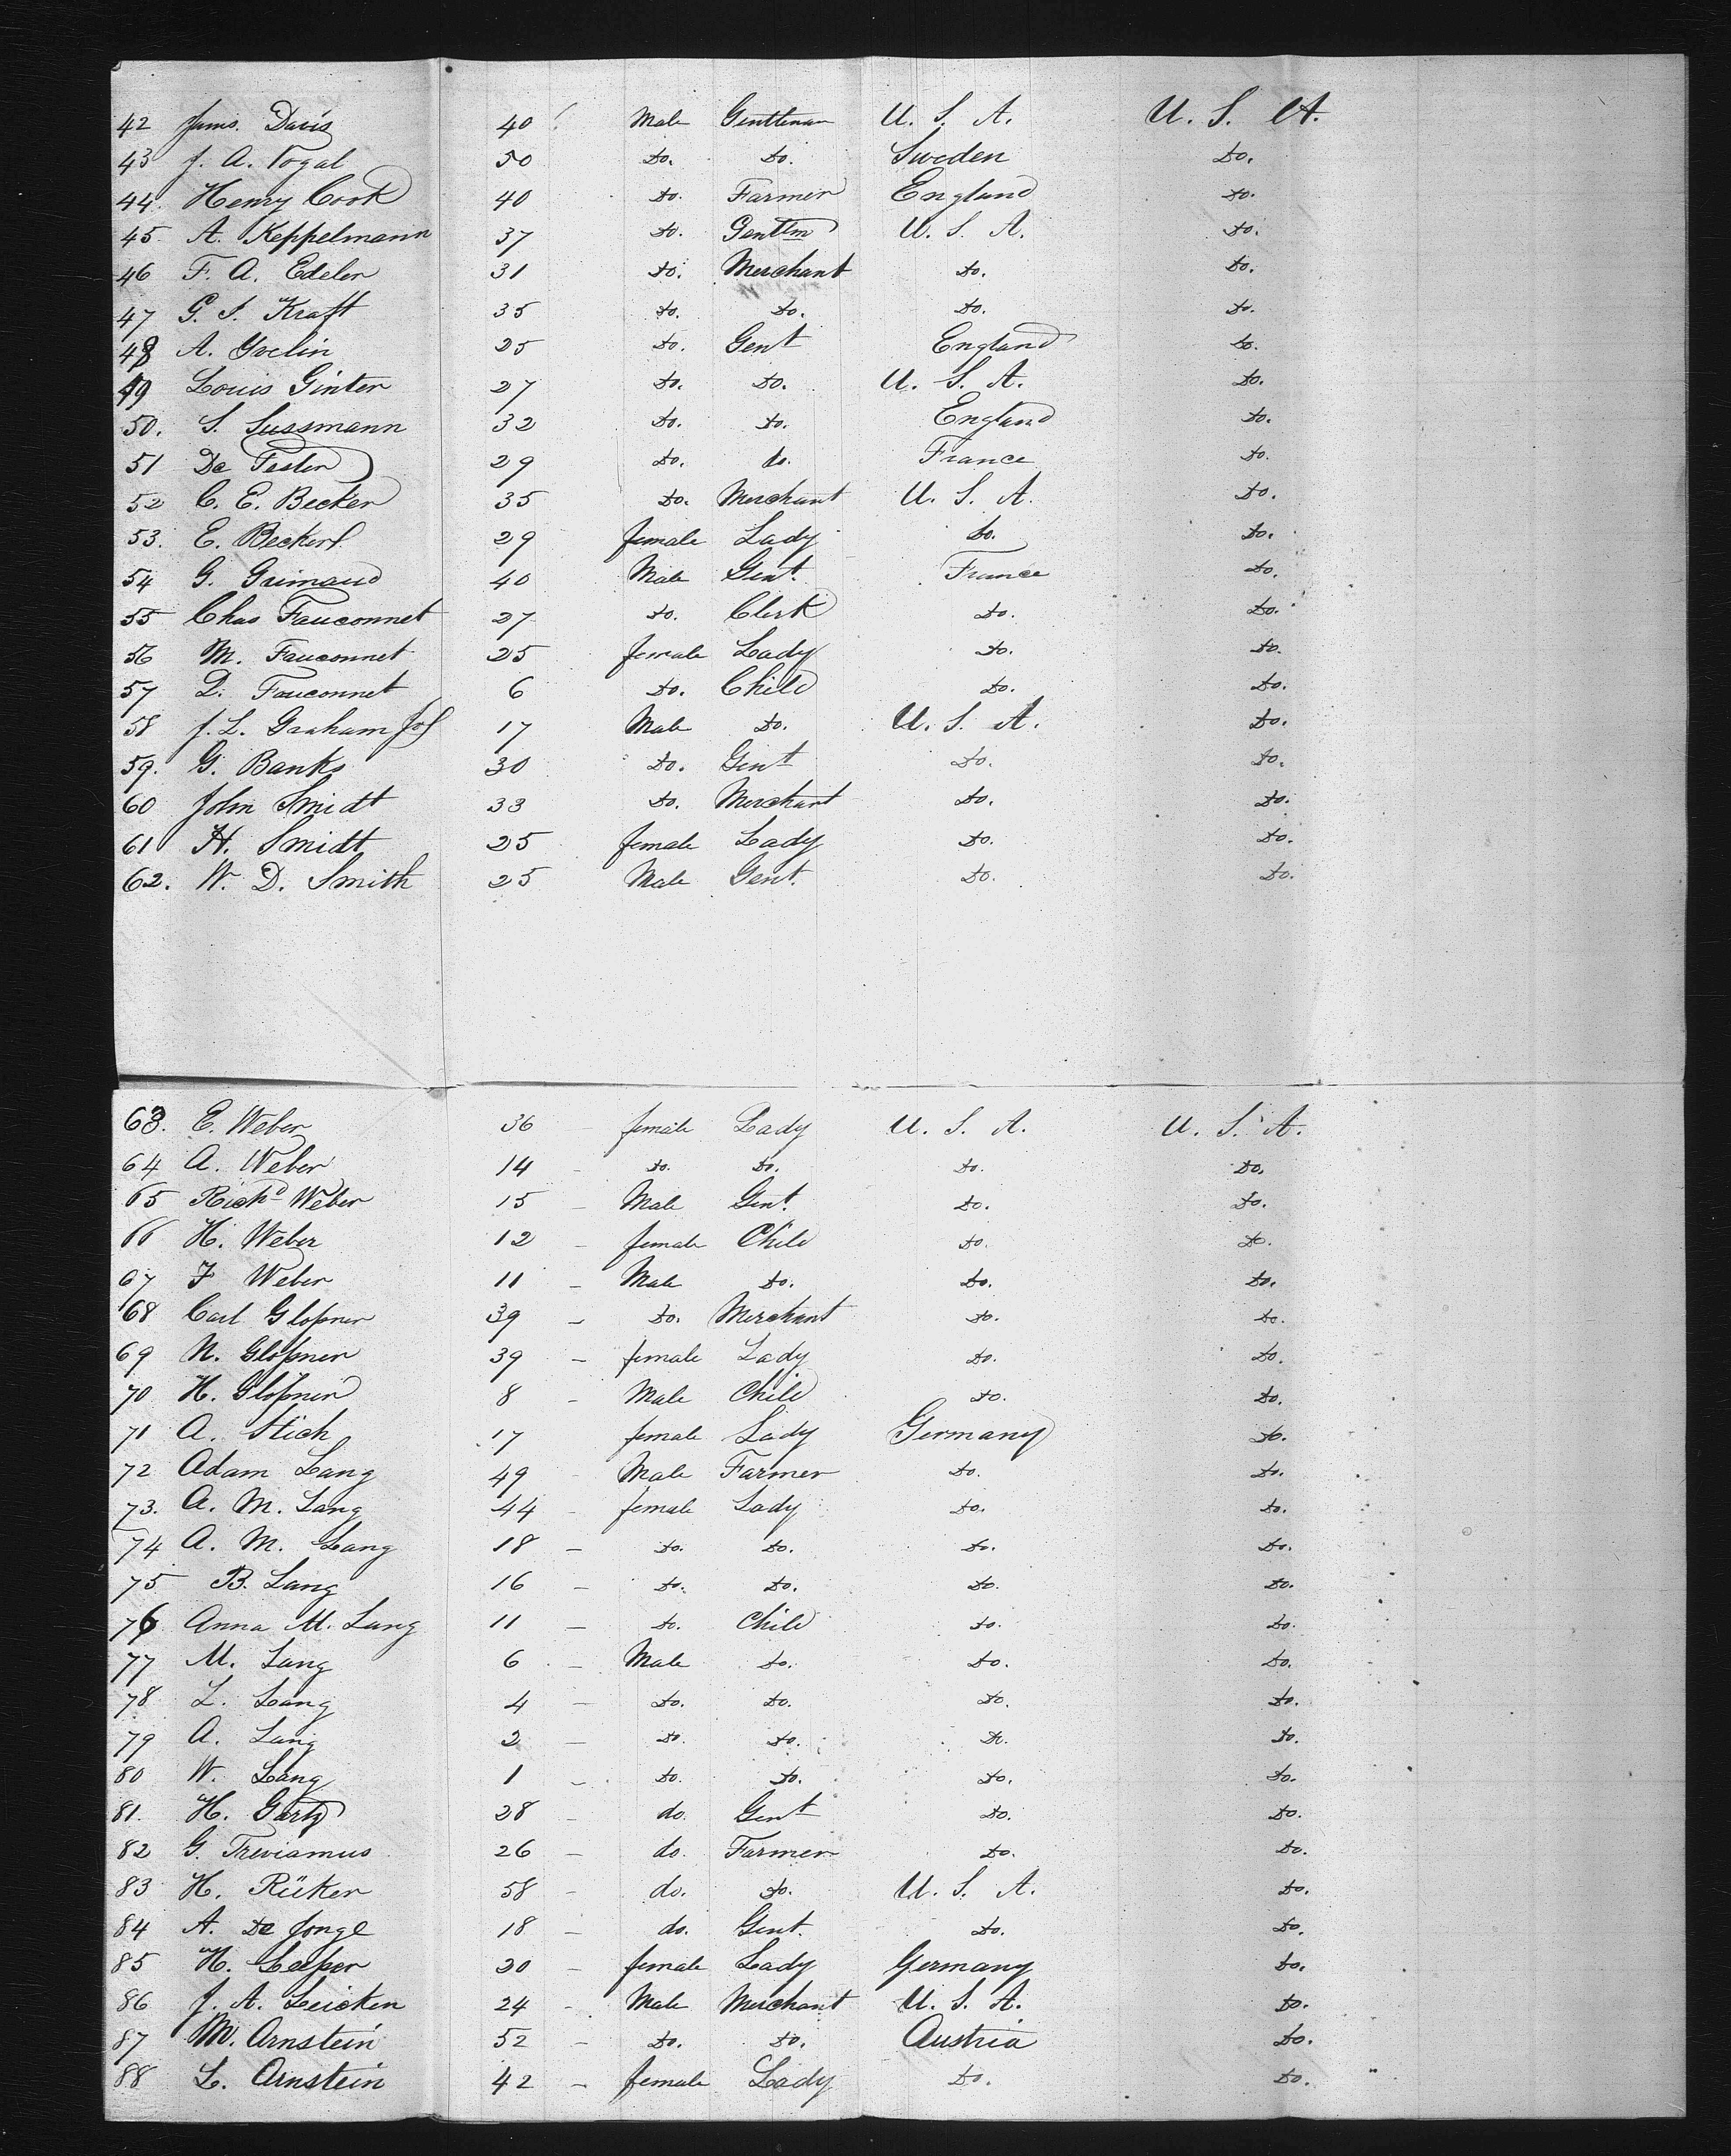 42 Jams. Davis 40 Male Gentleman U. S. A. U. S. A.
43 J. A. Vogal 50 Do. Do. Sweden Do.
44. Henry Cook 40 Do. Farmer England Do.
45. A. Keppelmann 37 Do. Gentlm U. S. A. Do.
46 F. A. Edeler 31 Do. Merchant Do. Do.
47 G. S. Kraft 35 Do. Do. Do. Do.
48 A. Yvelin 25 Do. Gent England Do.
49 Louis Ginter 27 Do. Do. U. S. A. Do.
50. S. Sussmann 32 Do. Do. England Do.
51 De Fester 29 Do. do. France Do.
52 C. E. Becker 35 Do. Merchant U. S. A. Do.
53. E. Becker 29 female Lady Do. Do.
54 G. Grimaud 40 Male Gent. France Do.
55 Chas Fauconnet 27 Do. Clerk Do. Do.
56 M. Fauconnet 25 female Lady Do. Do.
57 D. Fauconnet 6 Do. Child Do. Do.
58 J. L. Graham 17 Male Do. U. S. A. Do.
59. G. Banks 30 Do. Gent Do. Do.
60 John Smidt 33 Do. Merchant Do. Do.
61 H. Smidt 25 female Lady Do. Do.
62. W. D. Smith 25 Male Gent. Do. Do.
63. E. Weber 36 female Lady U. S. A. U. S. A.
64 A. Weber 14 Do. Do. Do. Do.
65 Richd Weber 15 Male Gent. Do. Do.
66 H. Weber 12 female Child Do. Do.
67 F Weber 11 Male Do. Do. Do.
68 Carl Glossner 39 Do. Merchant Do. Do.
69 N. Glossner 39 female Lady Do. Do.
70 H. Glossner 8 Male Child Do. Do.
71 A. Stich 17 female Lady Germany Do.
72 Adam Lang 49 Male Farmer Do. Do.
73. A. M. Lang 44 female Lady Do. Do.
74 A. M. Lang 18 Do. Do. Do. Do.
75 B. Lang 16 Do. Do. Do. Do.
76 Anna M. Lang 11 Do. Child Do. Do.
77 M. Lang 6 Male Do. Do. Do.
78 L. Lang 4 Do. Do. Do. Do.
79 A. Lang 2 Do. Do. Do. Do.
80 W. Lang 1 Do. Do. Do. Do.
81. H. Garty 28 do. Gent Do. Do.
82 G. Treviamus 26 do. Farmer Do. Do.
83 H. Rüker 58 do. Do. U. S. A. Do.
84 A. De Jonge 18 do. Gent. Do. Do.
85 H. 20 female Lady Germany Do.
86 J. A. Leicken 24 Male Merchant U. S. A. Do.
87 M. Arnstein 52 Do. Do. Austria Do.
88 L. Arnstein 42 female Lady Do. Do.